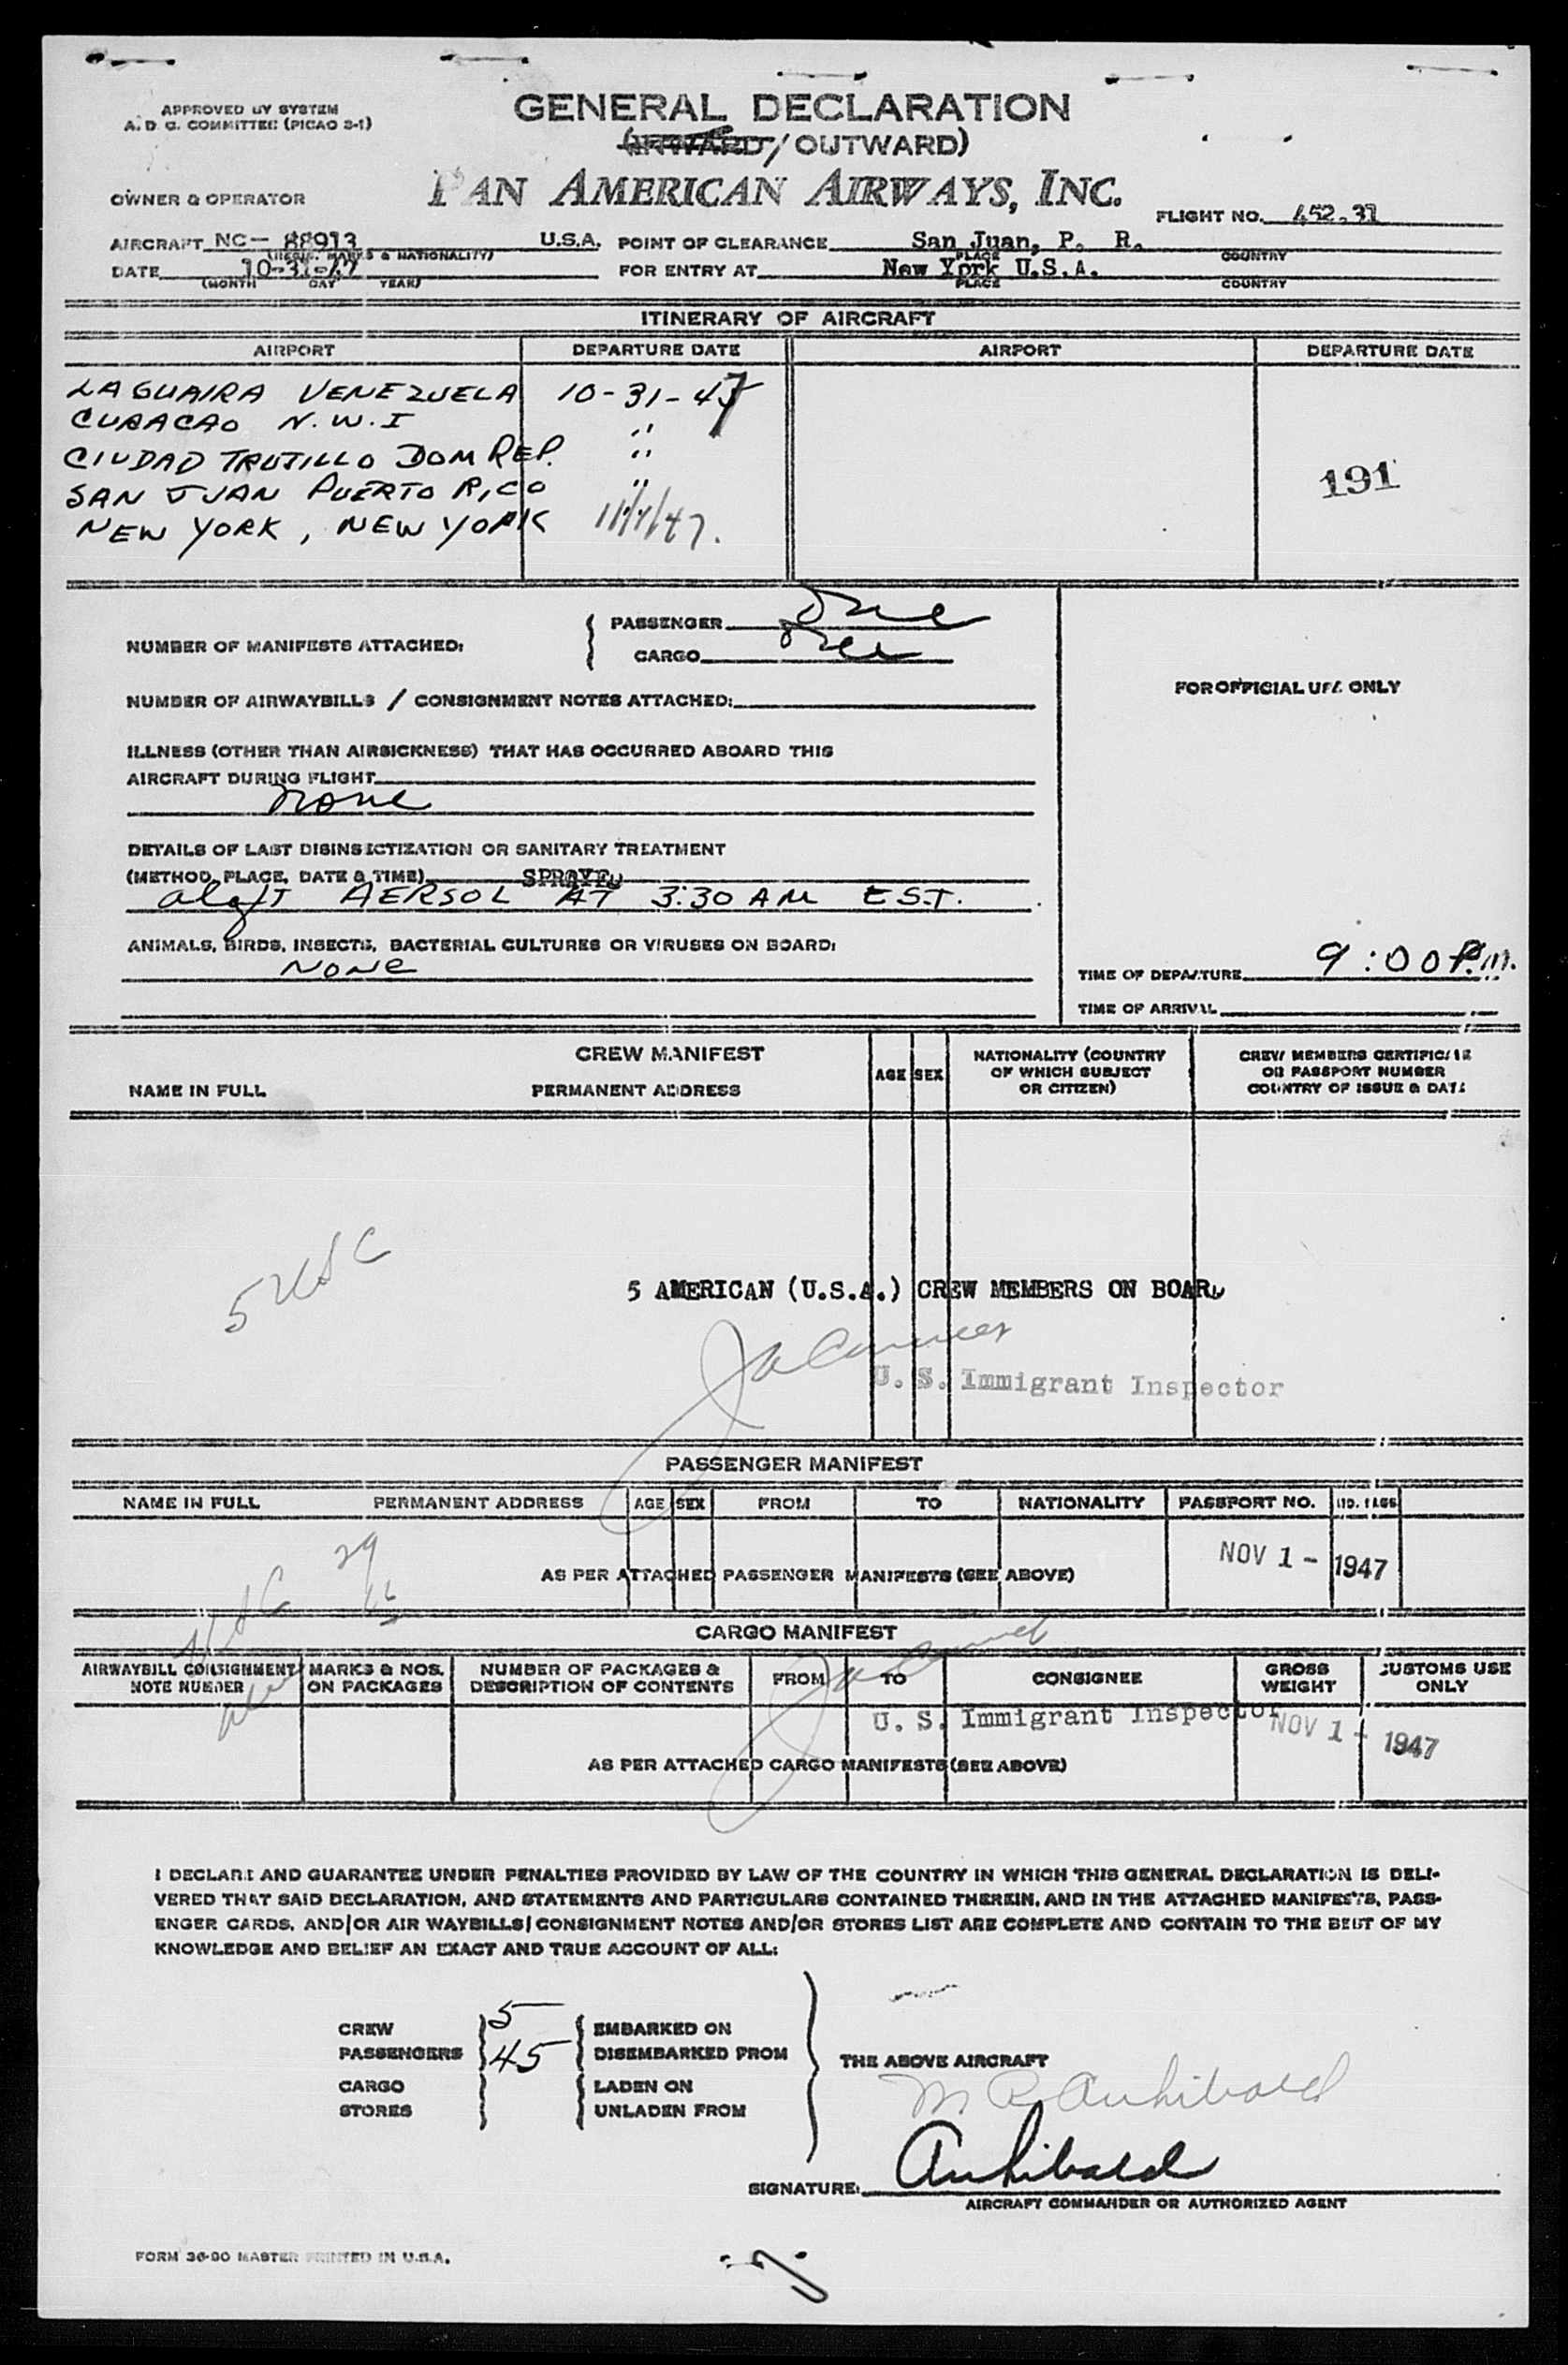 APPROVED BY SYSTEM
A. D. C. COMMITTEE (PICAO 3-1)
GENERAL DECLARATION
(INWARD / OUTWARD)
OWNER & OPERATOR
PAN AMERICAN AIRWAYS, INC.
FLIGHT NO. 452.31
AIRCRAFT NC- 88913 U.S.A. POINT OF CLEARANCE San Juan, P. R.
(REGIS. MARKS & NATIONALITY) PLACE COUNTRY
DATE 10-31-47 FOR ENTRY AT New York U.S.A.
(MONTH DAY YEAR) PLACE COUNTRY
ITINERARY OF AIRCRAFT
AIRPORT DEPARTURE DATE AIRPORT DEPARTURE DATE
LAGUAIRA VENEZUELA 10-31-47
CURACAO N.W.I "
CIUDAD TRUJILLO DOM REP. "
SAN JUAN PUERTO RICO "
191
NEW YORK, NEW YORK 11/1/47.
NUMBER OF MANIFESTS ATTACHED:
PASSENGER One
CARGO
NUMBER OF AIRWAYBILLS / CONSIGNMENT NOTES ATTACHED:
FOR OFFICIAL USE ONLY
ILLNESS (OTHER THAN AIRSICKNESS) THAT HAS OCCURRED ABOARD THIS
AIRCRAFT DURING FLIGHT
None
DETAILS OF LAST DISINSECTIZATION OR SANITARY TREATMENT
(METHOD, PLACE, DATE & TIME) SPRAYED
aloft AERSOL AT 3:30 AM EST.
ANIMALS, BIRDS, INSECTS, BACTERIAL CULTURES OR VIRUSES ON BOARD:
NONE
TIME OF DEPARTURE 9:00 P.M.
TIME OF ARRIVAL
CREW MANIFEST
NAME IN FULL PERMANENT ADDRESS AGE SEX NATIONALITY (COUNTRY OF WHICH SUBJECT OR CITIZEN) CREW MEMBERS CERTIFICATE OR PASSPORT NUMBER COUNTRY OF ISSUE & DATE
5 USC
5 AMERICAN (U.S.A.) CREW MEMBERS ON BOARD
U. S. Immigrant Inspector
PASSENGER MANIFEST
NAME IN FULL PERMANENT ADDRESS AGE SEX FROM TO NATIONALITY PASSPORT NO. NO. BAGS
29
NOV 1 - 1947
AS PER ATTACHED PASSENGER MANIFESTS (SEE ABOVE)
USC
CARGO MANIFEST
AIRWAYBILL CONSIGNMENT NOTE NUMBER MARKS & NOS. ON PACKAGES NUMBER OF PACKAGES & DESCRIPTION OF CONTENTS FROM TO CONSIGNEE GROSS WEIGHT CUSTOMS USE ONLY
U. S. Immigrant Inspector
NOV 1 - 1947
AS PER ATTACHED CARGO MANIFESTS (SEE ABOVE)
I DECLARE AND GUARANTEE UNDER PENALTIES PROVIDED BY LAW OF THE COUNTRY IN WHICH THIS GENERAL DECLARATION IS DELI-
VERED THAT SAID DECLARATION, AND STATEMENTS AND PARTICULARS CONTAINED THEREIN, AND IN THE ATTACHED MANIFESTS, PASS-
ENGER CARDS, AND/OR AIR WAYBILLS/CONSIGNMENT NOTES AND/OR STORES LIST ARE COMPLETE AND CONTAIN TO THE BEST OF MY
KNOWLEDGE AND BELIEF AN EXACT AND TRUE ACCOUNT OF ALL:
CREW 5 EMBARKED ON
PASSENGERS 45 DISEMBARKED FROM
THE ABOVE AIRCRAFT
CARGO LADEN ON
STORES UNLADEN FROM
M R Archibald
SIGNATURE: Archibald
AIRCRAFT COMMANDER OR AUTHORIZED AGENT
FORM 36-90 MASTER PRINTED IN U.S.A.